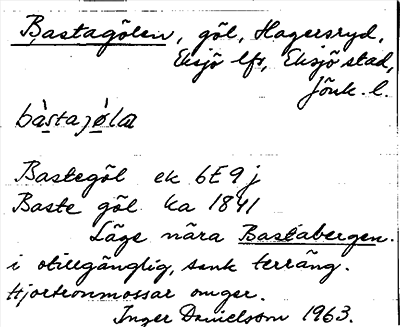 Bastagölen, göl, Hagersryd,
Eksjö lfs, Eksjö stad,
Jönk. l.
bàstajø̀la
Bastegöl ek 6E9j
Baste göl ka 1841
Läge nära Bastabergen.
i otillgänglig, sank terräng.
Hjortronmossar omger.
Inger Danielsson 1963.